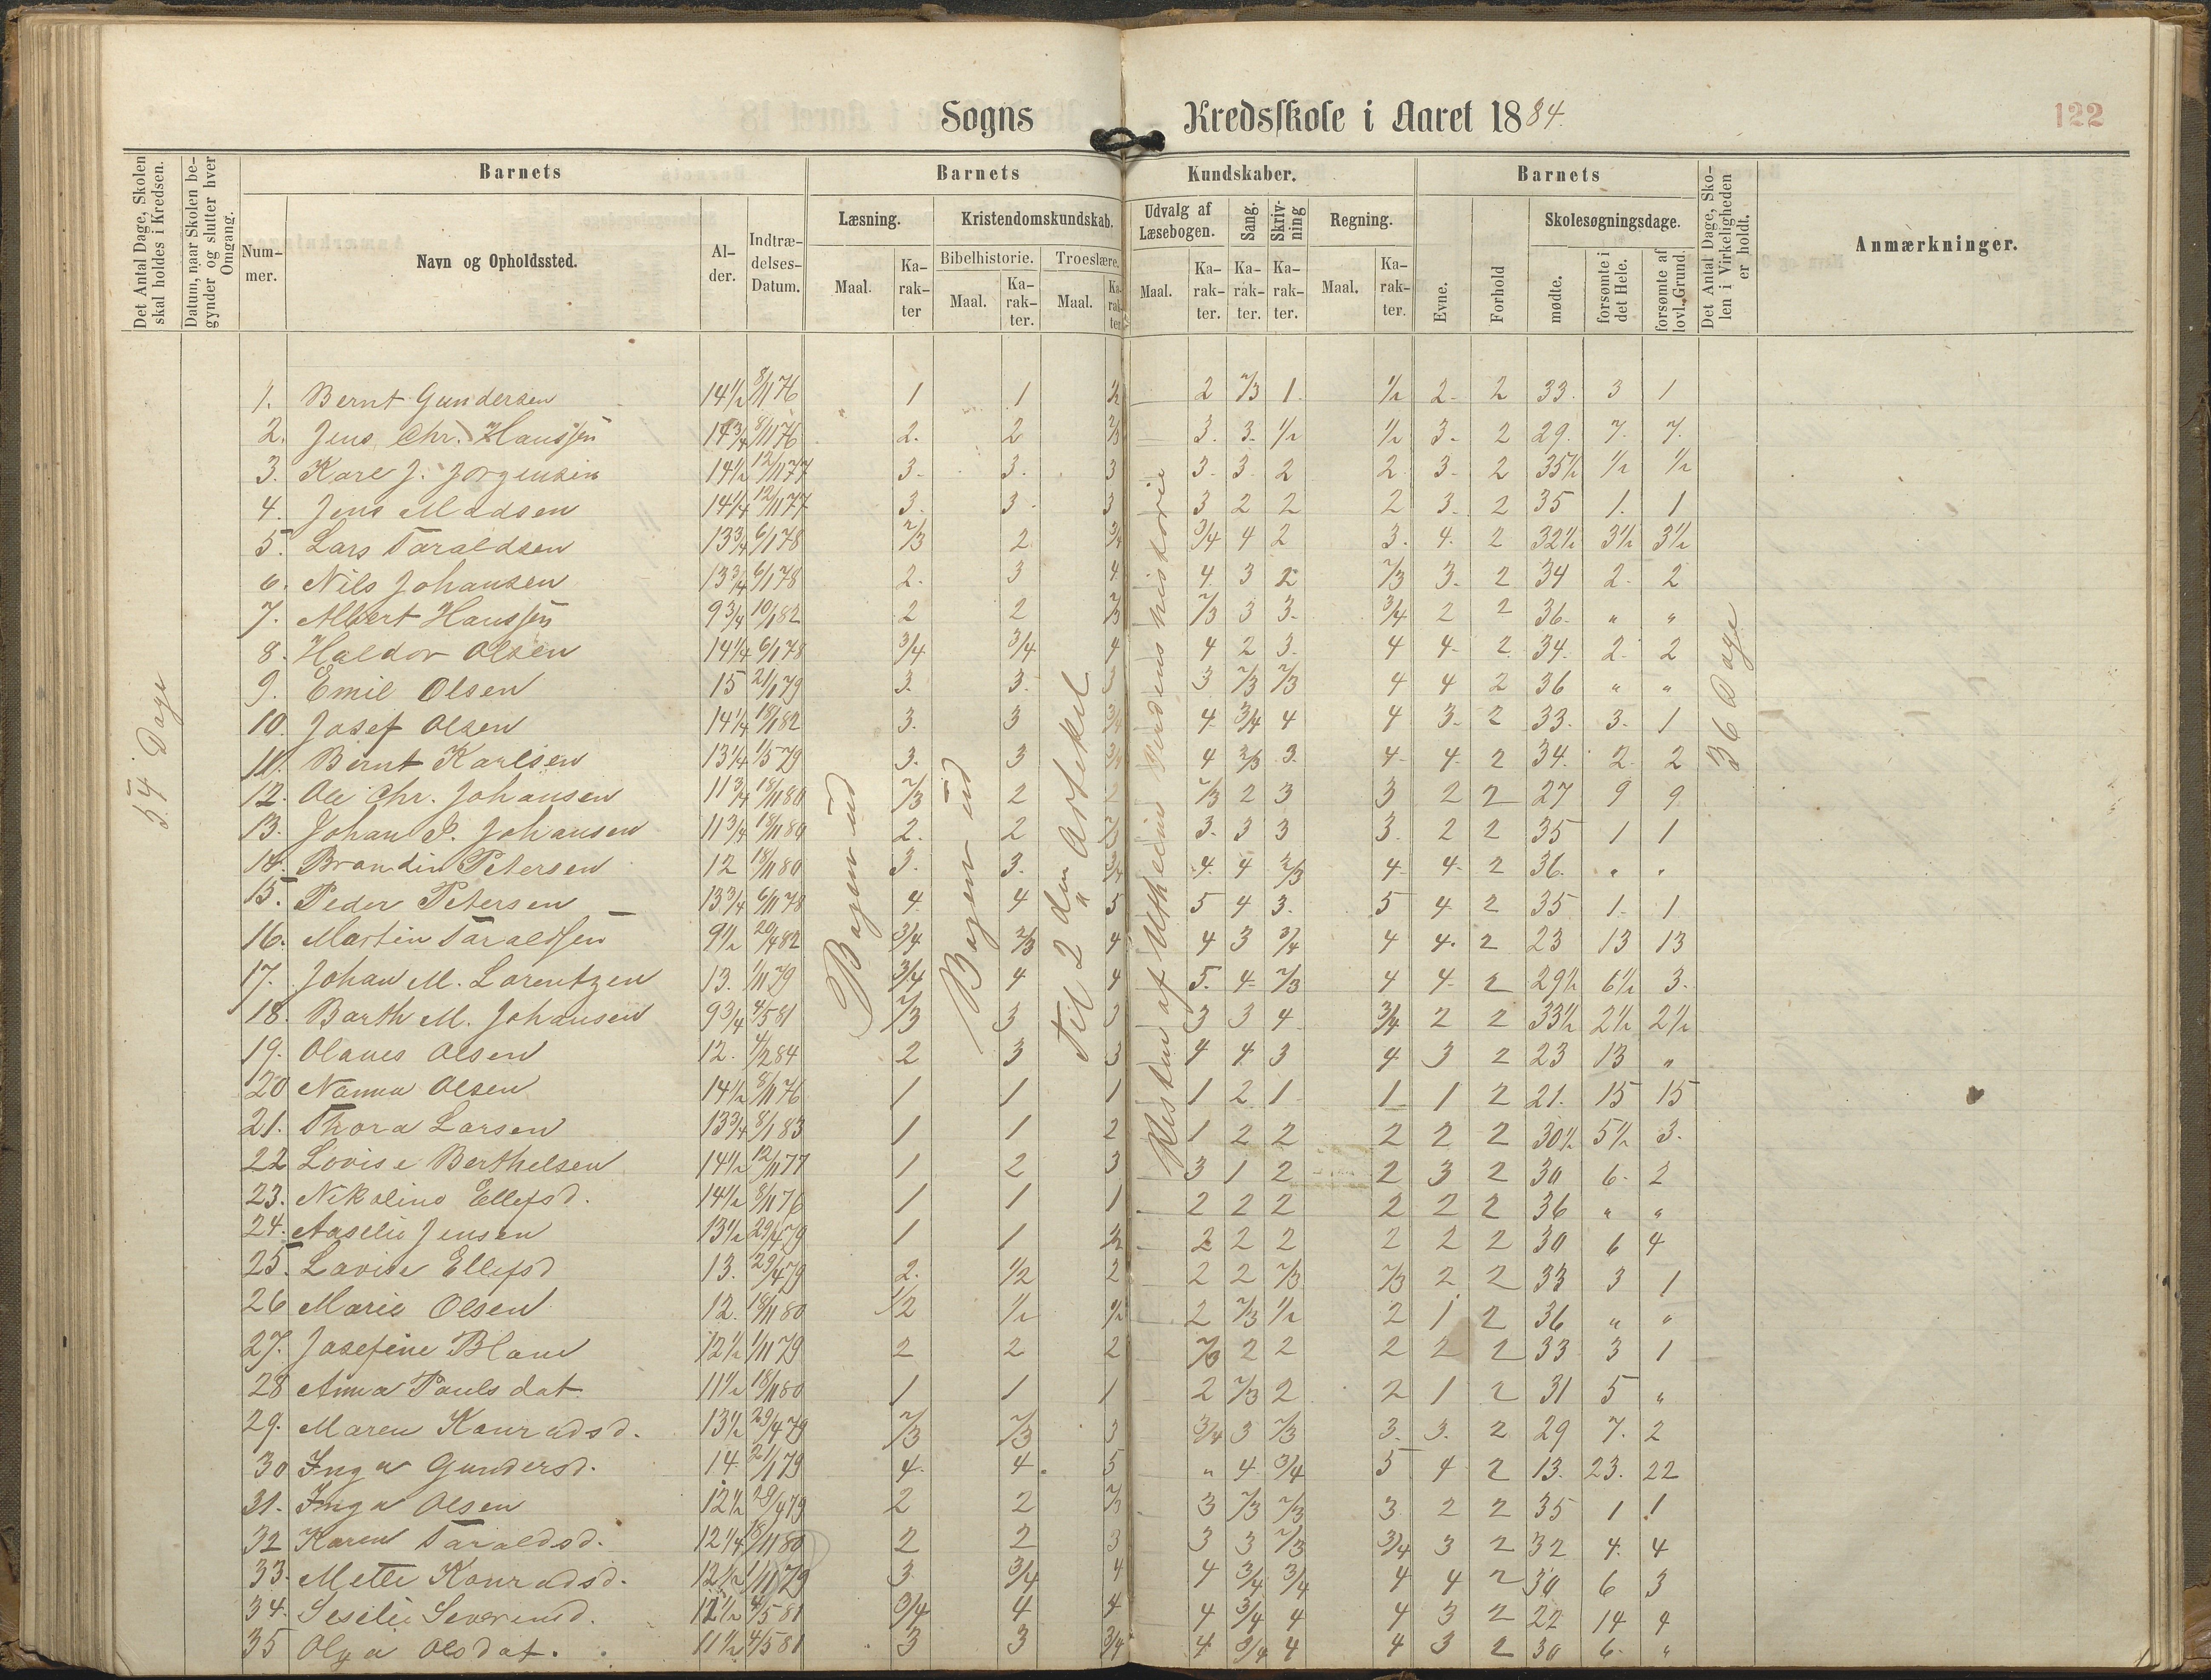 Sogns Kredsskole i Aaret 1884.
122
Det Antal Dage, Skolen skal holdes i Kredsen.
Datum, naar Skolen begynder og slutter hver Omgang.
Barnets
Nummer.
Navn og Opholdssted.
Alder.
Indtrædelses-Datum.
Barnets Kundskaber.
Læsning.
Maal.
Karakter
Kristendomskundskab.
Bibelhistorie.
Maal.
Karakter.
Troeslære.
Maal.
Karakter
Udvalg af Læsebogen.
Maal.
Karakter.
Sang.
Karakter.
Skrivning
Karakter.
Regning.
Maal.
Karakter.
Barnets
Evne.
Forhold
Skolesøgningsdage.
mødte.
forsømte i det Hele.
forsømte af lovl. Grund.
Det Antal Dage, Skolen i Virkeligheden er holdt.
Anmærkninger.
54 Dage
Bogen ud
Bogen ud
Til 2 den Artikel
Resten af Udtheinr Verdens historie
36 Dage
1. Bernt Gundersen 14½ 8/11 76 1 1 ½ 2 2/3 1. ½ 2 2 33. 3 1
2. Jens Chr. Hanssen 14¾ 8/11 76 2. 2 2/3 3. 3. ½ ½ 3 2 29. 7. 7.
3. Karl J. Jørgensen 14½ 12/11 77 3. 3. 3 3. 3. 2 2 3 2 35½ ½ ½
4. Jens Madsen 14¼ 12/11 77 3. 3 3 3 2 2 2 3 2 35 1. 1
5. Lars Taraldsen 13¾ 6/1 78 2/3 2 3/4 3/4 4 2 3. 4. 2 32½ 3½ 3½
6. Nils Johansen 13¾ 6/1 78 2. 3 4 4. 3 2 2/3 3. 2 34 2. 2
7. Albert Hanssen 9¾ 10/1 82 2 2 2/3 2/3 3 3. 3/4 2 2 36. " "
8. Haldor Olsen 14¼ 6/1 78 3/4 3/4 4 4 2 3. 4 4 2 34. 2. 2
9. Emil Olsen 15 21/1 79 3. 3. 3 3 2/3 2/3 4 4 2 36 " "
10. Josef Olsen 14¼ 18/1 82 3. 3 3/4 4. 3/4 4 4 3 2 33. 3. 1
11. Bernt Karlsen 13¼ 1/5 79 3. 3 3/4 4 2/3 3. 4 4 2 34. 2. 2
12. Ole Chr. Johansen 11¾ 18/11 80 2/3 2 2 2/3 2 3 3 2 2 27 9 9
13. Johan P. Johansen 11¾ 18/11 80 2. 2 2/3 3. 3 3 3. 2 2 35 1 1
14. Brandin Petersen 12 18/11 80 3. 3. 3/4 4. 4 2/3 4 4 2 36. " "
15. Peder Petersen 13¾ 6/11 78 4 4 5 5 4 3. 5 4 2 35 1. 1
16. Martin Taraldsen 9½ 20/4 82 3/4 2/3 4 4 3 3/4 4 4. 2 23 13 13
17. Johan M. Lorentzen 13. 1/11 79 3/4 4 4 5. 4 2/3 4 4 2 29½ 6½ 3.
18. Barth M. Johansen 9¾ 4/5 81 2/3 3 3 3 3 4 3/4 2 2 33½ 2½ 2½
19. Olaves Olsen 12. 4/2 84 2 3 3 4 4 3 4 3 2 23 13 "
20 Nanna Olsen 14½ 8/11 76 1 1 1 1 2 1 1 1 2 21. 15 15
21. Thora Larsen 13¾ 8/1 83 1 1 2 1 2 2 2 2 2 30½ 5½ 3.
22 Lovise Berthelsen 14½ 12/11 77 1 2 3 3 1 2 2 3 2 30 6. 2
23. Nikoline Ellefsd. 14½ 8/11 76 1 1 1 2 2 2 2 2 2 36 " "
24. Aaselie Jensen 13½ 29/4 79 1 1 ½ 2 2 2 2 2 2 30 6 4
25. Lovise Ellefsd 13. 29/4 79 2. ½ 2 2 2 2/3 2/3 2 2 33 3 1
26 Marie Olsen 12. 18/11 80 ½ ½ ½ 2 2/3 ½ 2 1 2 36 " "
27. Josefine Blom 12½ 1/11 79 2 2 2 2/3 2 2 2 2 2 33 3 1
28 Anna Paulsdat. 11½ 18/11 80 1 1 1 2 2/3 2 2 1 2 31 5 "
29. Maren Konradsd. 13½ 29/4 79 2/3 2/3 3 3/4 3 2/3 3. 3. 2 29 7. 2
30 Inga Gundersd. 14 21/1 79 4. 4. 5 " 4 3/4 5 4 2 13. 23. 22
31. Inga Olsen 12½ 29/4 79 2 2 2/3 3 2/3 2/3 3 2 2 35 1 1
32 Karen Taraldsd. 12¼ 18/11 80 2 2 3 3 3 2/3 3/4 3 2 32 4. 4
33. Mette Konradsd. 12½ 1/11 79 3 3/4 4 4 3/4 3/4 4 4 2 30 6 3
34. Seselie Severinsd. 12½ 4/5 81 3/4 4 4 4 3/4 4 4 3 2 22 14 4
35 Olga Olsdat. 11½ 4/5 81 3 3 3/4 4 3/4 4 4 3 2 30 6. "